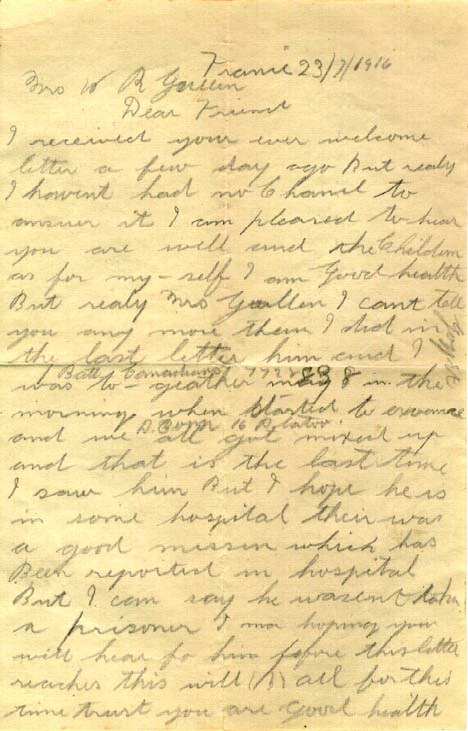 France 23/7/1916
Mrs W R Gullen
Dear Friend
I received your ever welcome
letter a few day ago But realy
I havent had no Chanc to
answer it I am pleased to hear
you are well and the Children
as for my-self I am Good health
But realy Mrs Gullen I cant tell
you any more then I did in
the last letter him and I
Batt Canadians 7728
was to-geather may 8 in the
morning when started to advance
D Comp 16 Platoo
and we all got mixed up
and that is the last time
I saw him But I hope he is
in some hospital their was
a good missen which has
Been reported in hospital
But I can say he wasent taken
a prisoner I am hoping you
will hear fo him before this letter
reaches this will (B) all for this
time trust you are Good health